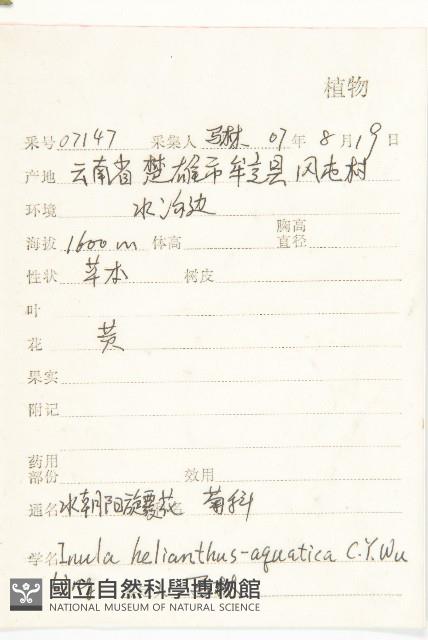 植物
采号 07147 采集人 马林 07年 8月19日
产地 云南省楚雄市牟定县风屯村
环境 水沟边
海拔 1600m 体高 胸高直径
性状 草本 树皮
叶
花 黄
果实
附记
药用部份 效用
通名 水朝阳旋覆花 菊科
学名 Inula helianthus-aquatica C.Y.Wu
國立自然科學博物館
NATIONAL MUSEUM OF NATURAL SCIENCE